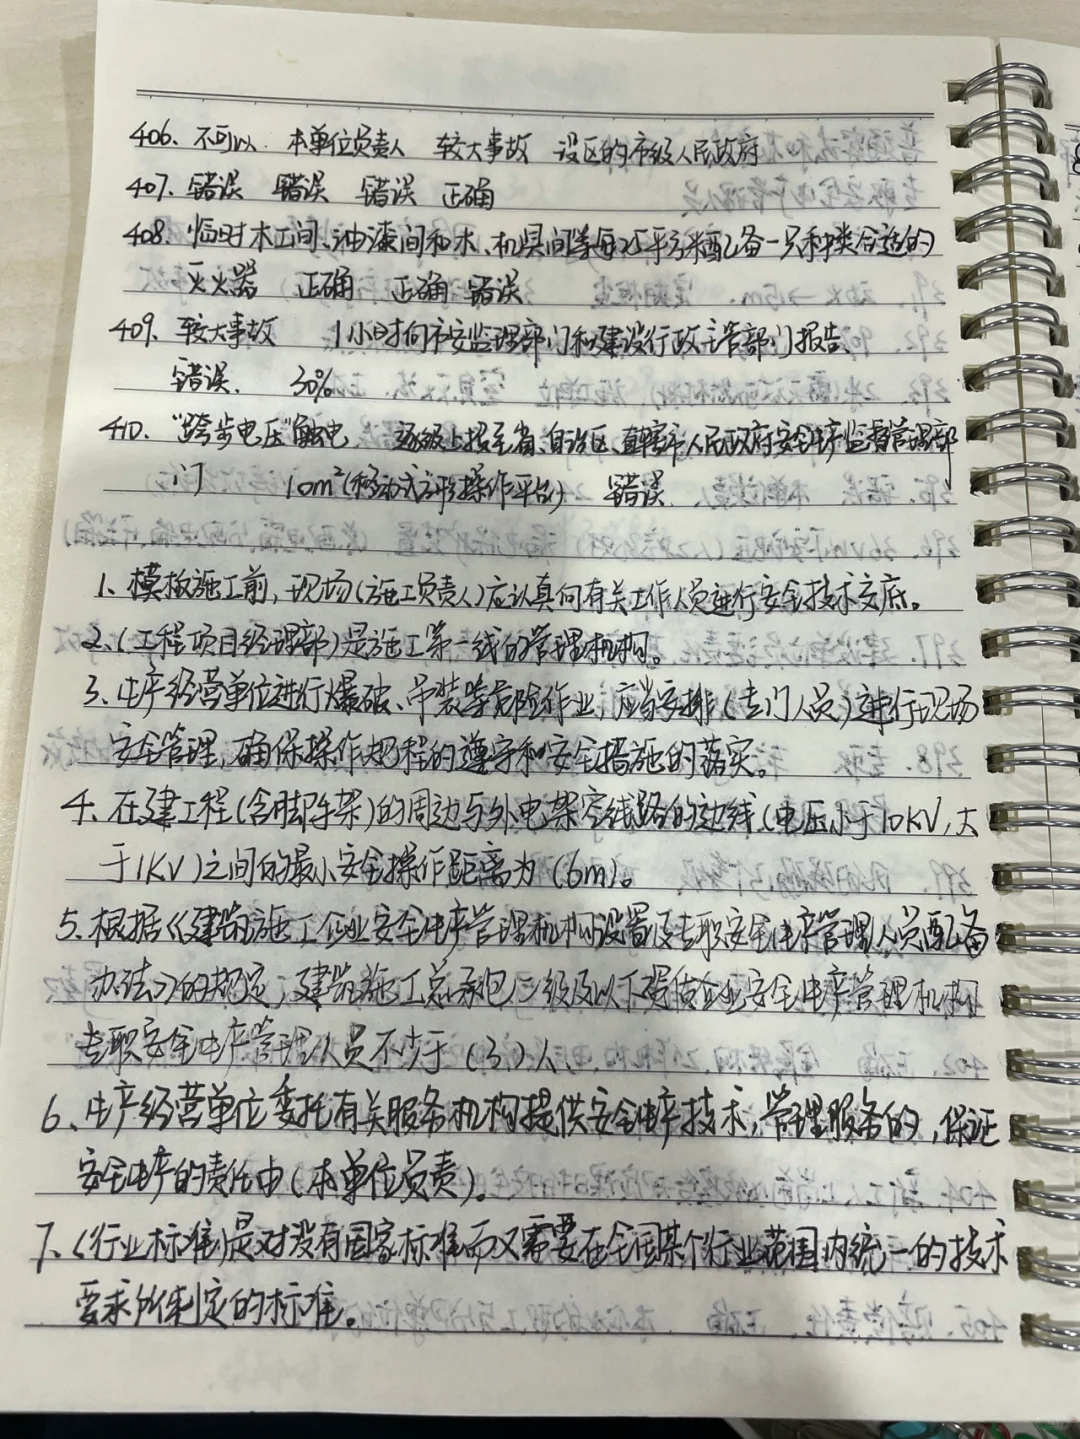 406、不可以 本单位负责人 较大事故 设区的市级人民政府
407、错误 错误 错误 正确
408、临时木工间、油漆间和木、机具间等每25平方米配备一只种类合适的
灭火器 正确 正确 错误
409、较大事故 1小时向市安监理部门和建设行政主管部门报告、
错误、 30%
410、“跨步电压”触电 逐级上报至省、自治区、直辖市人民政府安全生产监督管理部
门 10m²(移动式方形操作平台) 错误
1、模板施工前,现场(施工负责人)应认真向有关工作人员进行安全技术交底。
2、(工程项目经理部)是施工第一线的管理机构。
3、生产经营单位进行爆破、吊装等危险作业,应当安排(专门人员)进行现场
安全管理,确保操作规程的遵守和安全措施的落实。
4、在建工程(含脚手架)的周边与外电架空线路的边线(电压小于10KV,大
于1KV)之间的最小安全操作距离为(6m)。
5、根据《建筑施工企业安全生产管理机构设置及专职安全生产管理人员配备
办法》的规定,建筑施工总承包二级及以下资质企业安全生产管理机构
专职安全生产管理人员不少于(3)人、
6、生产经营单位委托有关服务机构提供安全生产技术、管理服务的,保证
安全生产的责任由(本单位负责)。
7、(行业标准)是对没有国家标准而又需要在全国某个行业范围内统一的技术
要求所制定的标准。